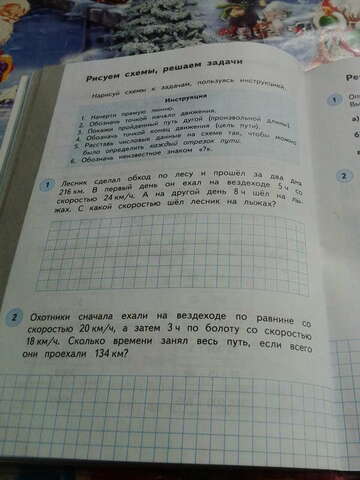 Рисуем схемы, решаем задачи
Нарисуй схемы к задачам, пользуясь инструкцией.
Инструкция
1. Начерти прямую линию.
2. Обозначь точкой начало движения.
3. Покажи пройденный путь дугой (произвольной длины).
4. Обозначь точкой конец движения (цель пути).
5. Расставь числовые данные на схеме так, чтобы можно
было определить каждый отрезок пути.
6. Обозначь неизвестное знаком «?».
1 Лесник сделал обход по лесу и прошёл за два дня
216 км. В первый день он ехал на вездеходе 5 ч со
скоростью 24 км/ч. А на другой день 8 ч шёл на лы-
жах. С какой скоростью шёл лесник на лыжах?
2 Охотники сначала ехали на вездеходе по равнине со
скоростью 20 км/ч, а затем 3 ч по болоту со скоростью
18 км/ч. Сколько времени занял весь путь, если всего
они проехали 134 км?
Ре
1
а)
2